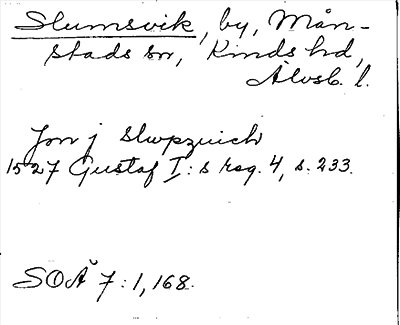 Slumsvik, by, Mån-
stads sn, Kinds hd,
Älvsb. l.
Jon j Slwpzuich
1527 Gustaf I:s reg. 4, s. 233.
SOÄ 7:1, 168.